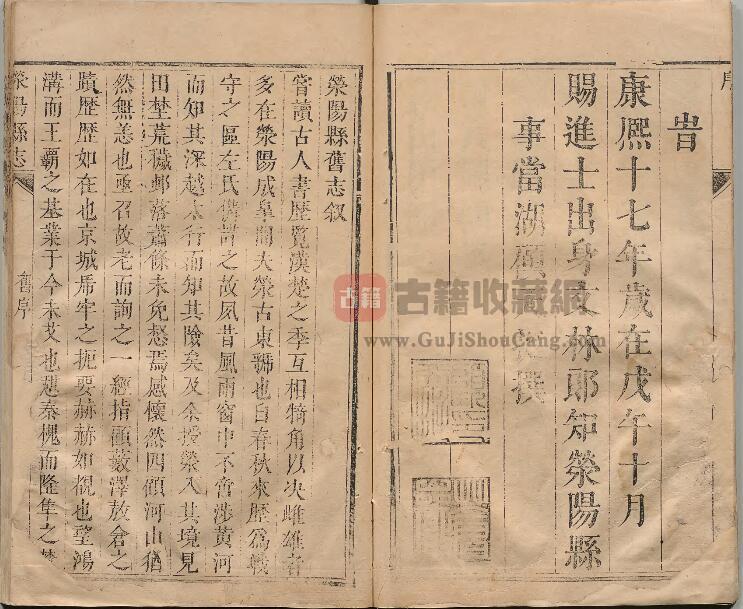 序
旹
康熙十七年歲在戊午十月
賜進士出身文林郎知滎陽縣
事當湖撰
古籍 古籍收藏網
www.GuJiShouCang.com
滎陽縣舊志叙
嘗讀古人書歷覽漢楚之季互相犄角以决雌雄者
多在滎陽成臯間夫滎古東虢也自春秋來歷爲戰
守之區左氏備誌之故夙昔風雨窗中不啻涉黄河
而知其深越太行而知其險矣及余授滎入其境見
田埜荒穢邨落蕭條未免愁焉感懷然四顧河山猶
然無恙也亟召故老而詢之一經指顧藪澤敖倉之
蹟歷歷如在也京城虎牢之扼要赫赫如覩也望鴻
溝而王霸之基業于今未艾也憇秦槐而隆隼之
滎陽縣志
舊序